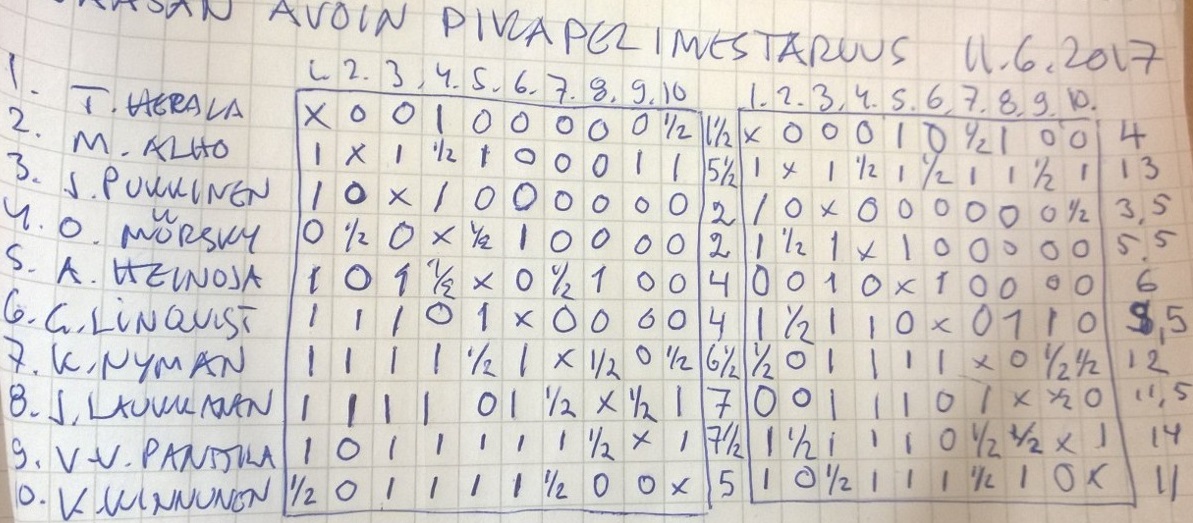 AVOIN PIKAPELIMESTARUUS 11.6.2017
1. 2. 3. 4. 5. 6. 7. 8. 9. 10 1. 2. 3. 4. 5. 6. 7. 8. 9. 10.
1. T. HERALA X 0 0 1 0 0 0 0 0 ½ 1½ X 0 0 0 1 0 ½ 1 0 0 4
2. M. ALHO 1 X 1 ½ 1 0 0 0 1 1 5½ 1 X 1 ½ 1 ½ 1 1 ½ 1 13
3. J. PUKKINEN 1 0 X 1 0 0 0 0 0 0 2 1 0 X 0 0 0 0 0 0 ½ 3,5
4. O. MÖRSKY 0 ½ 0 X ½ 1 0 0 0 0 2 1 ½ 1 X 1 0 0 0 0 0 5,5
5. A. HEINOJA 1 0 1 ½ X 0 ½ 1 0 0 4 0 0 1 0 X 1 0 0 0 0 6
6. G. LINQUIST 1 1 1 0 1 X 0 0 0 0 4 1 ½ 1 1 0 X 0 1 1 0 9,5
7. K. NYMAN 1 1 1 1 ½ 1 X ½ 0 ½ 6½ ½ 0 1 1 1 1 X 0 ½ ½ 12
8. J. LAUKKANEN 1 1 1 1 0 1 ½ X ½ 1 7 0 0 1 1 1 0 1 X ½ 0 11,5
9. V-V. 1 0 1 1 1 1 1 ½ X 1 7½ 1 ½ 1 1 1 0 ½ ½ X 1 14
10. K. KINNUNEN ½ 0 1 1 1 1 ½ 0 0 X 5 1 0 ½ 1 1 1 ½ 1 0 X 11